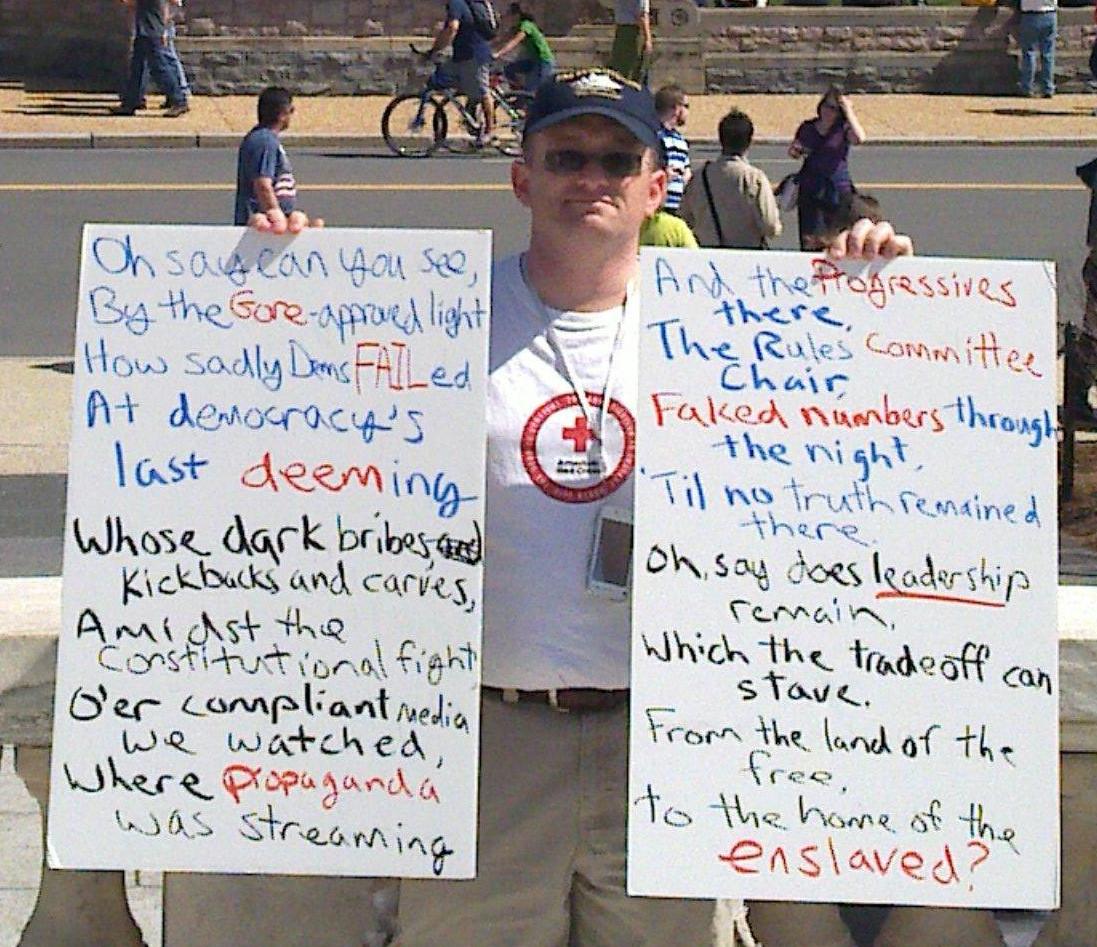 Oh say can you see,
By the Gore-approved light
How sadly Dems FAILed
At democracy's
last deeming
Whose dark bribes,
Kickbacks and carves,
Amidst the
Constitutional fight
O'er compliant media
we watched,
Where propaganda
was streaming
And the Progressives
there,
The Rules Committee
Chair,
Faked numbers through
the night,
'Til no truth remained
there.
Oh, say does leadership
remain,
Which the tradeoff can
stave.
From the land of the
free,
to the home of the
enslaved?
American
Red Cross